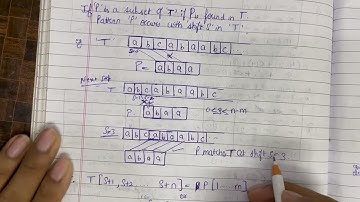 If 'P' is a subset of 'T' if P is found in T
Pattern 'P' occurs with shift 'S' in 'T'.
eg 'T' a b c a b a a b c -
S=0
P = a b a a
Next set
T a b c a b a a b c -
P a b a a 0 ≤ S ≤ n-m
S=3 a b c a b a a b c -
a b a a P matches T at shift S = 3
T [S+1, S+2 S+n] = P[1 m]